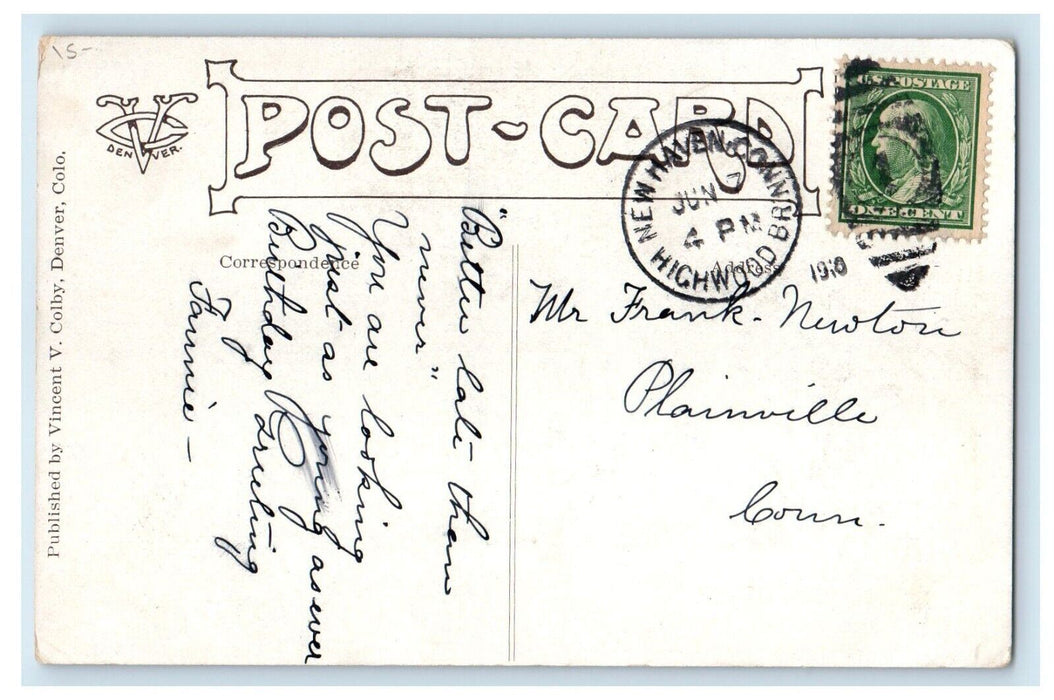 15-
POST-CARD
DENVER.
Published by Vincent V. Colby, Denver, Colo.
Correspondence
Address
U.S. POSTAGE
ONE CENT
NEW HAVEN, CONN.
JUN 7
4 PM
HIGHWOOD BR.
Mr Frank. Newton
Plainville
Conn.
"Better late than
never"
You are looking
just as young as ever
Birthday Greeting
Fannie —